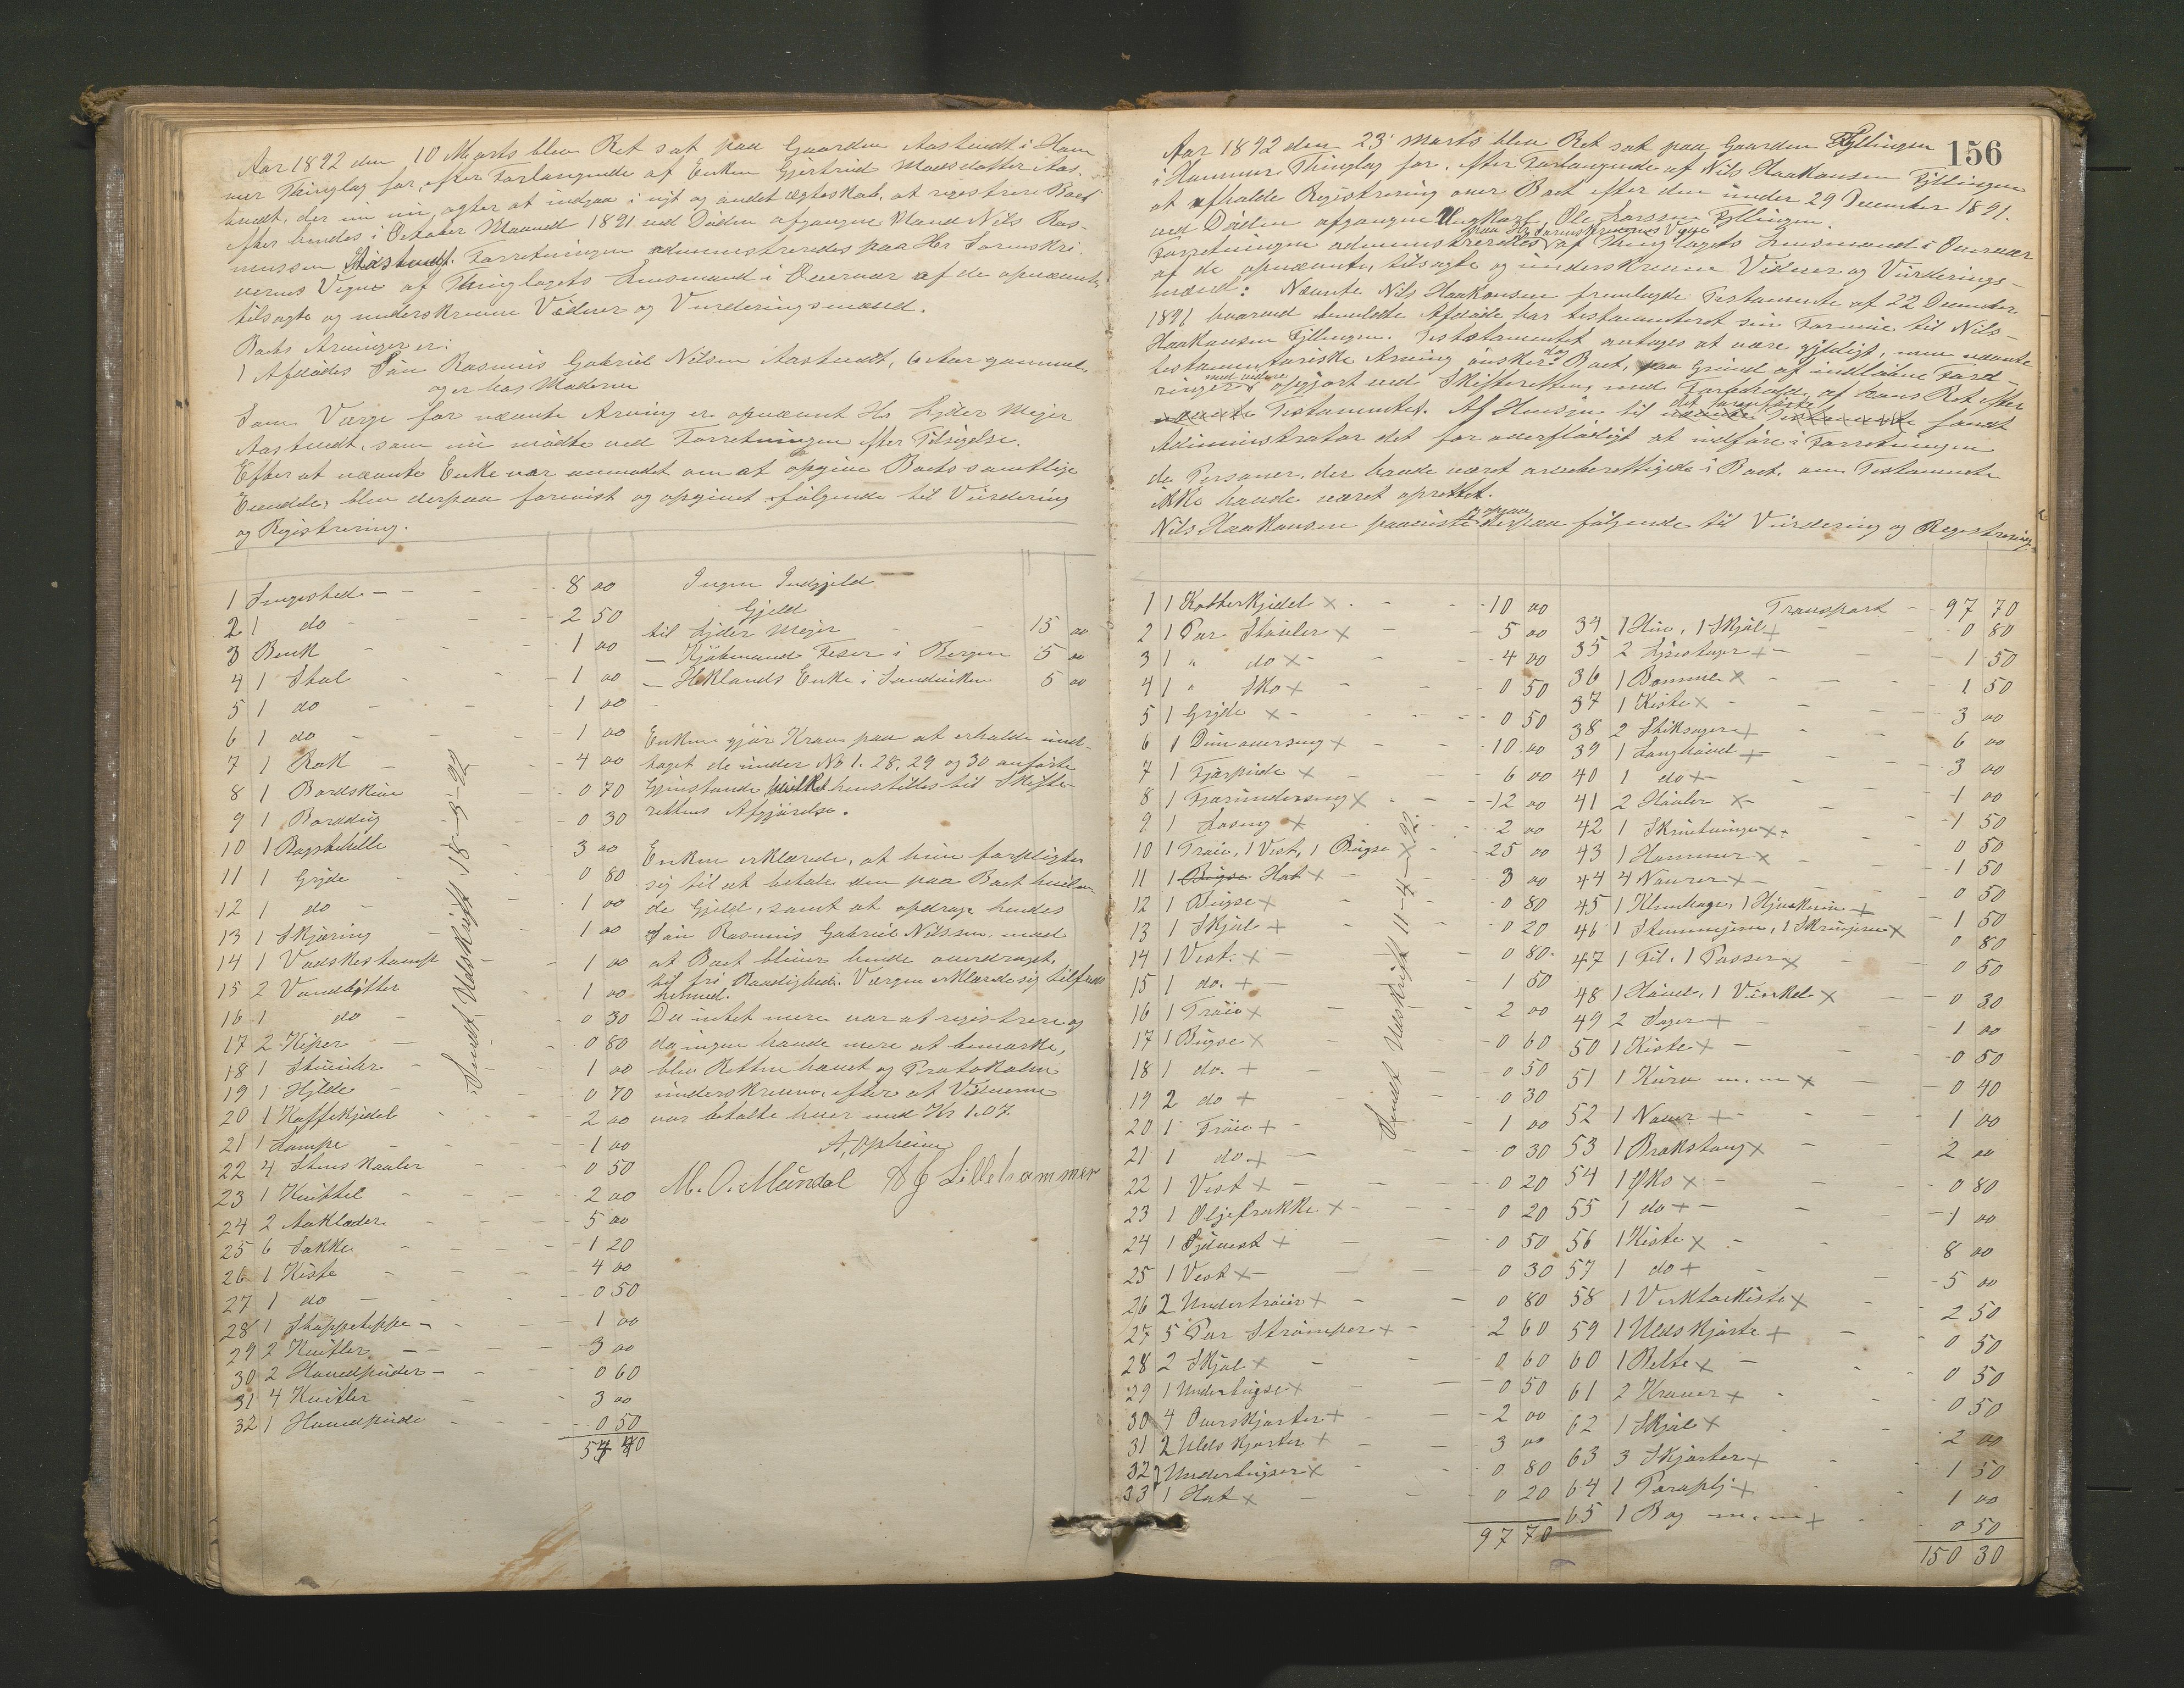 Aar 1892 den 10 Marts blev Ret sat paa Gaarden Aastvedt i Ham
mer Thinglag for, efter Forlangende af Enken Gjertrud Madsdatter Aas-
tvedt, der nu agter at indgaa i nyt og andet ægteskab, at registrere Boet
efter hendes i Oktober Maaned 1891 ved Døden afgangne Mand Nils Ras-
mussen Aastvedt. Forretningen administreredes paa Hr Sorenskri
verens Vegne af Thinglagets Lensmand i Overvær af de opnævnte,
tilsagte og underskrevne Vidner og Vurderingsmænd.
Boets Arvinger er:
1 Afdødes Søn Rasmus Gabriel Nilsen Aastvedt, 6 Aar gammel,
og er hos Moderen
Som Værge for nævnte Arving er opnævnt Hr Lyder Mejer
Aastvedt, som nu mødte ved Forretningen efter Tilsigelse.
Efter at nævnte Enke var anmodet om at opgive Boets samtlige
Eiendele, blev derpaa forevist og opgivet følgende til Vurdering
og Registrering.
1 Sengested - 8 00
2 1 do - 2 50
3 Benk - 1 00
4 1 Stol - 1 00
5 1 do - 1 00
6 1 do - 1 00
7 1 Rok - 4 00
8 1 Bordskive 0 70
9 1 Borddug 0 30
10 1 Bagstehelle 3 00
11 1 Gryde 0 80
12 1 do 1 00
13 1 Skjæring 1 00
14 1 Vadskestamp 1 00
15 2 Vandbøtter 1 00
16 1 do 0 30
17 2 Kiper 0 80
18 1 1 00
19 1 Hylde 0 70
20 1 Kaffekjedel 2 00
21 1 Lampe 1 00
22 4 0 50
23 1 Kvittel 2 00
24 2 Aaklæder 5 00
25 6 Sække 1 20
26 1 Kiste 4 00
27 1 do 0 50
28 1 Stoppeteppe - 1 00
29 2 Kvitler 3 00
30 2 Hovedpuder - 0 60
31 4 Kvitler 3 00
32 1 Hovedpude 0 50
54 40
Sendt Udskrift 18-3-92
Ingen Indgjeld
Gjeld
til Lyder Mejer - 15 00
- Kjøbmand Feser i Bergen 5 00
- Heklands Enke i Sandviken 5 00
Enken gjør Krav paa at erholde und-
taget de under No 1. 28. 29 og 30 anførte
Gjenstande hvilket henstilles til Skifte-
rettens Afgjørelse.
Enken erklærede, at hun forpligter
sig til at betale den paa Boet hvilen
de Gjeld, samt at opdrage hendes
Søn Rasmus Gabriel Nilssen, mod
at Boet bliver hende overdraget
til fri Raadighed. Værgen erklærede sig tilfreds
hermed.
Da intet mere var at registrere og
da ingen havde mere at bemærke,
blev Retten hævet og Protokollen
underskreven, efter at Vidnerne
var betalte hver med Kr 1.07.
A. Opheim
M. O. Mundal A J Lillehammer
156
Aar 1892 den 23 Marts blev Ret sat paa Gaarden Fyllingen
i Hammer Thinglag for, efter Forlangende af Nils Haakonsen Fyllingen
at afholde Registrering over Boet efter den under 29 December 1891.
ved Døden afgangne Ungkarl, Ole Larssen Fyllingen.
paa Hr Sorenskriverens Vegne
Forretningen administreredes af Thinglagets Lensmand i Overvær
af de opnævnte, tilsagte og underskrevne Vidner og Vurderings-
mænd: Nævnte Nils Haakonsen fremlagde Testamente af 22 December
1891 hvorved anmeldte Afdøde har testamenteret sin Formue til Nils
Haakonsen Fyllingen. Testamentet antages at være gyldigt, men nævnte
testamentariske Arving ønsker dog Boet, paa Grund af indløbne Ford-
ringer med videre opgjort ved Skifteretten, med Forbehold af hans Ret efter
nævnte Testamentet. Af Hensyn til det foranførte nævnte Testamente fandt
Administrator det for overflødigt at indføre i Forretningen
de Personer, der havde været arveberettigede i Boet, om Testamente
ikke havde været oprettet.
Nils Haakonsen paaviste derpaa følgende til Vurdering og Registrering
1 1 Kobberkjedel x 10 00
2 1 Par Støvler x 5 00
3 1 " do x 4 00
4 1 " Sko x 0 50
5 1 Gryde x 0 50
6 1 Dunoverseng x 10 00
7 1 Fjærpude x 6 00
8 1 Fjærunderseng x 12 00
9 1 x 2 00
10 1 Trøie, 1 Vest, 1 Bugse x 25 00
11 1 Bugse Hat x 3 00
12 1 Bugse x 0 80
13 1 Skjæl x 0 20
14 1 Vest x 0 80
15 1 do. x 1 50
16 1 Trøie x 2 00
17 1 Bugse x 0 60
18 1 do. x 0 50
19 2 do x 0 30
20 1 Trøie x 1 00
21 1 do x 0 30
22 1 Vest x 0 20
23 1 Oljefrakke x 0 20
24 1 x 0 50
25 1 Vest x 0 30
26 2 Undertrøier x 0 80
27 5 Par Strømper x 2 60
28 2 Skjæl x 0 60
29 1 Underbugse x 0 50
30 4 Overskjorter x 2 00
31 2 Uldskjorter x 3 00
32 2 Underbugser x 0 80
33 1 Hat x 0 20
97 70
Sendt Udskrift 11-4-92
Transport - 97 70
34 1 Hue, 1 Skjæl x 0 80
35 2 x 1 50
36 1 Bomme x 1 50
37 1 Kiste x 3 00
38 2 Stiksager x 6 00
39 1 Langhøvel x 3 00
40 1 do x 1 00
41 2 Høvler x 1 50
42 1 Skruetvinge x 0 50
43 1 Hammer x 1 50
44 4 Navrer x 0 50
45 1 x 1 50
46 1 Stemmejern, 1 x 0 80
47 1 Fil, 1 Passer x 0 50
48 1 Høvel, 1 Vinkel x 0 30
49 2 Sager x 1 00
50 1 Kiste x 0 50
51 1 Kurv m. m x 0 40
52 1 Naver x 1 00
53 1 Brækstang x 2 00
54 1 Øks x 0 80
55 1 do x 1 00
56 1 Kiste x 8 00
57 1 do x 5 00
58 1 Verktøikiste x 2 50
59 1 Uldskjorte x 0 50
60 1 Belte x 0 50
61 2 Kraver x 0 50
62 1 Skjæl x 2 00
63 3 Skjorter x 1 50
64 1 Paraply x 1 00
65 1 Bog m. m x 0 50
150 30